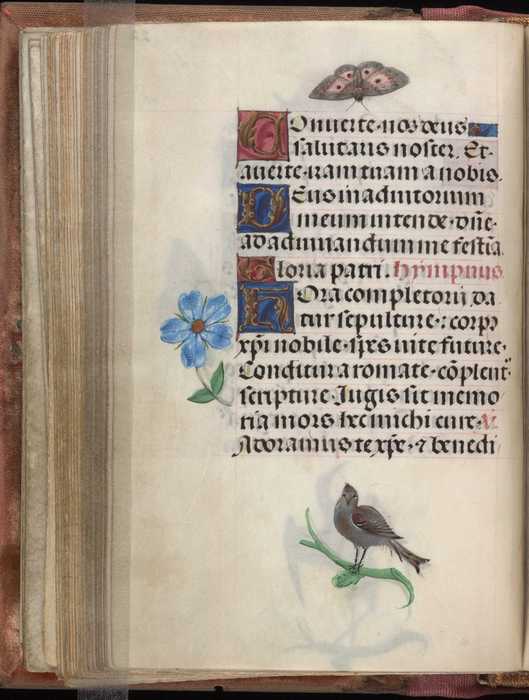 Onuerte nos deus
salutaris noster. Et
auerte iram tuam a nobis.
Deus in adiutorium
meum intende. dñe
ad adiuuandum me festīa.
Gloria patri. hympnus
Hora completorii da
tur sepulture. corpꝰ
xp̄i nobile. spes uite future.
Conditur aromate. cōplentᷣ
scripture. Jugis sit memo
ria mors hec michi cure. V.
Adoramus te xp̄e. ⁊ benedi